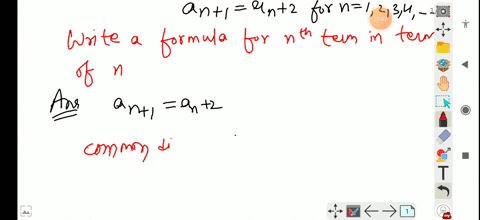 aₙ₊₁ = aₙ+2 for n=1,2,3,4,
Write a formula for nᵗʰ term in term
of n
Ans aₙ₊₁ = aₙ+2
common di